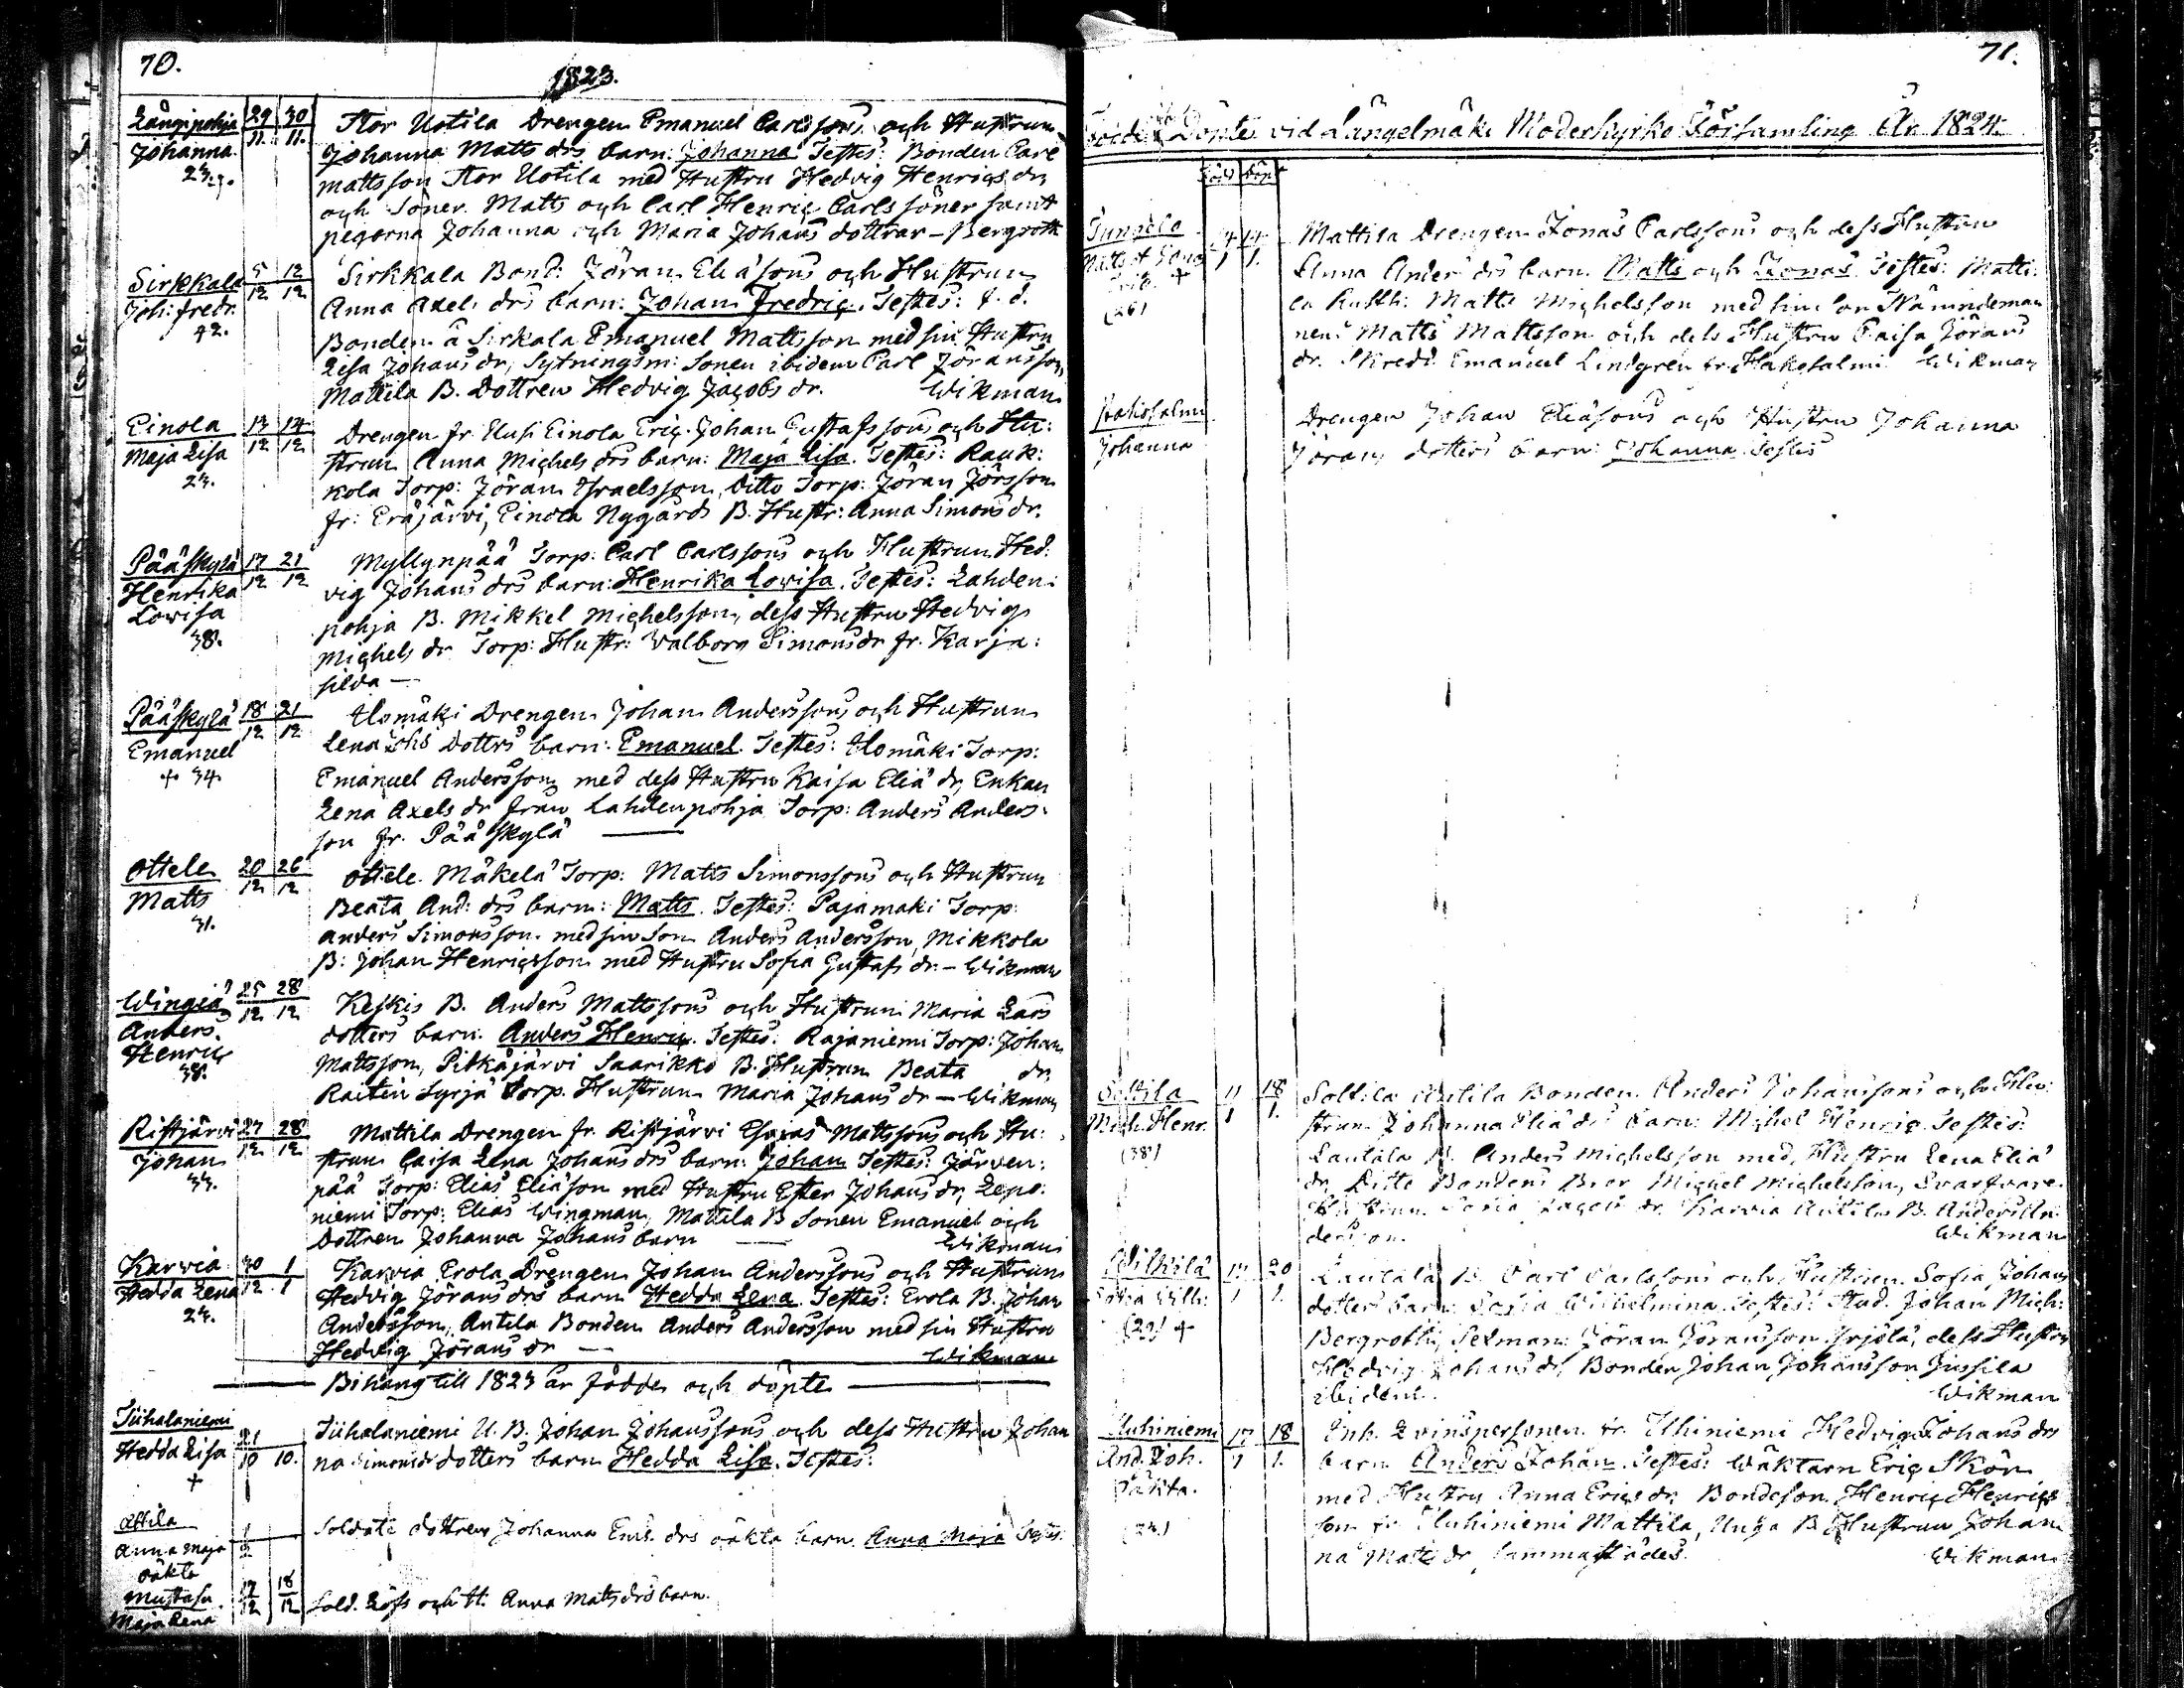 70.
1823.
Längipohja 29 30
11. 11.
Johanna
23.
Stor Uotila Drengen Emanuel Carlssons och Hustrun
Johanna Matts drs barn: Johanna Testes: Bonden Carl
Mattsson Stor Uotila med Hustru Hedvig Henrics dr,
och Söner Matts och Carl Henric Carls söner samt
pigorna Johanna och Maria Johans döttrar - Bergroth
Sirkkala 5 12
12 12
Joh: Fredr.
42.
Sirkkala Bond: Jöran Eliæ sons och Hustrun
Anna Axels drs barn: Johan Fredric. Testes: f. d.
Bonden å Sirkala Emanuel Mattsson med sin Hustru
Lisa Johans dr, Sytningsm: Sonen ibidem Carl Jöransson,
Mattila B. Dottren Hedvig Jacobs dr. Wikman
Einola 13 14
12 12
Maja Lisa
23.
Drengen fr. Uusi Einola Eric Johan Gustafssons och Hu:
strun Anna Michels drs barn: Maja Lisa. Testes: Rauk:
kola Torp: Jöran Israelsson, Ditto Torp: Jöran Jörsson
fr: Eräjärvi, Einola Nygård B. Hustr: Anna Simons dr.
Pääskylä 17 21
12 12
Henrika
Lovisa
38.
Myllynpää Torp: Carl Carlssons och Hustrun Hed:
vig Johans drs barn: Henrika Lovisa. Testes: Lahden:
pohja B. Mikkel Michelsson, dess Hustru Hedvig
Michels dr Torp: Hustr: Valborg Simonsdr fr. Karja:
silda —
Pääskylä 18 21
12 12
Emanuel
+ 34
Ilomäki Drengen Johan Anderssons och Hustrun
Lena Johs Dottrs barn: Emanuel. Testes: Ilomäki Torp:
Emanuel Andersson med dess Hustru Kaisa Eliæ dr, Enkan
Lena Axels dr från Lahdenpohja Torp: Anders Anders:
son fr. Pääskylä —
Ottele 20 26
12 12
Matts
31.
Ottele Mäkelä Torp: Matts Simonssons och Hustrun
Beata And: drs barn: Matts. Testes: Pajamaki Torp:
Anders Simonsson med sin Son Anders Andersson, Mikkola
B: Johan Henricsson med Hustru Sofia Gustafs dr. - Wikman
Wingiä 25 28
12 12
Anders
Henric
38.
Keskis B. Anders Mattssons och Hustrun Maria Lars
dotters barn: Anders Henric. Testes: Rajaniemi Torp: Johan
Mattsson, Pitkäjärvi Saarikko B. Hustrun Beata dr,
Raitin Syrjä Torp. Hustrun Maria Johans dr — Wikman
Ristjärvi 27 28
12 12
Johan
33.
Mattila Drengen fr. Ristjärvi Esaias Mattssons och Hu:
strun Caisa Lena Johans drs barn: Johan Testes: Järven:
pää Torp: Elias Eliæson med Hustru Ester Johans dr, Lepo:
niemi Torp: Elias Wingman, Mattila B Sonen Emanuel och
Dottren Johanna Johans barn — Wikman
Karvia 30 1
12 1
Hedda Lena
24.
Karvia Erola Drengen Johan Anderssons och Hustrun
Hedvig Jörans drs barn Hedda Lena. Testes: Erola B. Johan
Andersson, Antila Bonden Anders Andersson med sin Hustru
Hedvig Jörans dr — Wikman
Bihang till 1823 år födde och döpte
Tiihalaniemi
Hedda Lisa 21
10 10.
+
Tiihalaniemi U. B. Johan Johanssons och dess Hustru Johan
na Simonsdr dotters barn Hedda Lisa. Testes:
Attila
Anna Maja
oäkta
Soldats dottren Johanna Em: drs oäkta barn Anna Maja Testes:
Mustasu 17 18
12 12
Maja Lena
Sold. Löfs och H. Anna Matts drs barn.
71.
Födde Döpte vid Längelmäki Moderkyrko Församling År 1824.
Född Döpt
14 14
1 1.
Matts o Jonas
+
(26)
Mattila Drengen Jonas Carlssons och dess Hustru
Anna Anders drs barn. Matts och Jonas. Testes: Matti:
la Rusth: Matts Michelsson med sin Son Nämndeman
nen Matts Mattsson och dess Hustru Caisa Jörans
dr. Skredd. Emanuel Lindgren fr. Hakosalmi Wikman
Hakosalmi
Johanna
Drengen Johan Eliæsons och Hustru Johanna
Jörans dotters barn: Johanna Testes
Soltila 11 18
1 1.
Mich. Henr.
(38)
Soltila Antila Bonden Anders Johanssons och Hu:
strun Johanna Eliæ drs barn: Michel Henric. Testes:
Lautala B. Anders Michelsson med Hustru Lena Eliæ
dr, Ditto Bondens Bror Michel Michelsson, Svarfvare
Hustrun Karvia Antila B. Anders An:
dersson. Wikman
Wilkilä 17 20
1 1.
Sofia Wilh:
(29) +
Lautala B. Carl Carlssons och Hustrun Sofia Johans
dotters barn Sofia Wilhelmina. Testes: Stud. Johan Mich:
Bergroth, Sexman: Jöran Jöransson Yrjölä, dess Hustru
Hedvig Johans dr, Bonden Johan Johansson Jussila
ibidem. Wikman
Uuhiniemi 17 18
1 1.
And. Joh.
oäkta.
(24)
Inh. Qvinspersonen fr. Uhiniemi Hedvig Johans drs
barn Anders Johan. Testes: Wäktarn Eric Skön
med Hustru Anna Erics dr, Bondeson Henric Henrics
son fr. Uuhiniemi Mattila, Unga B Hustrun Johan
na Matts dr, sammastädes. Wikman